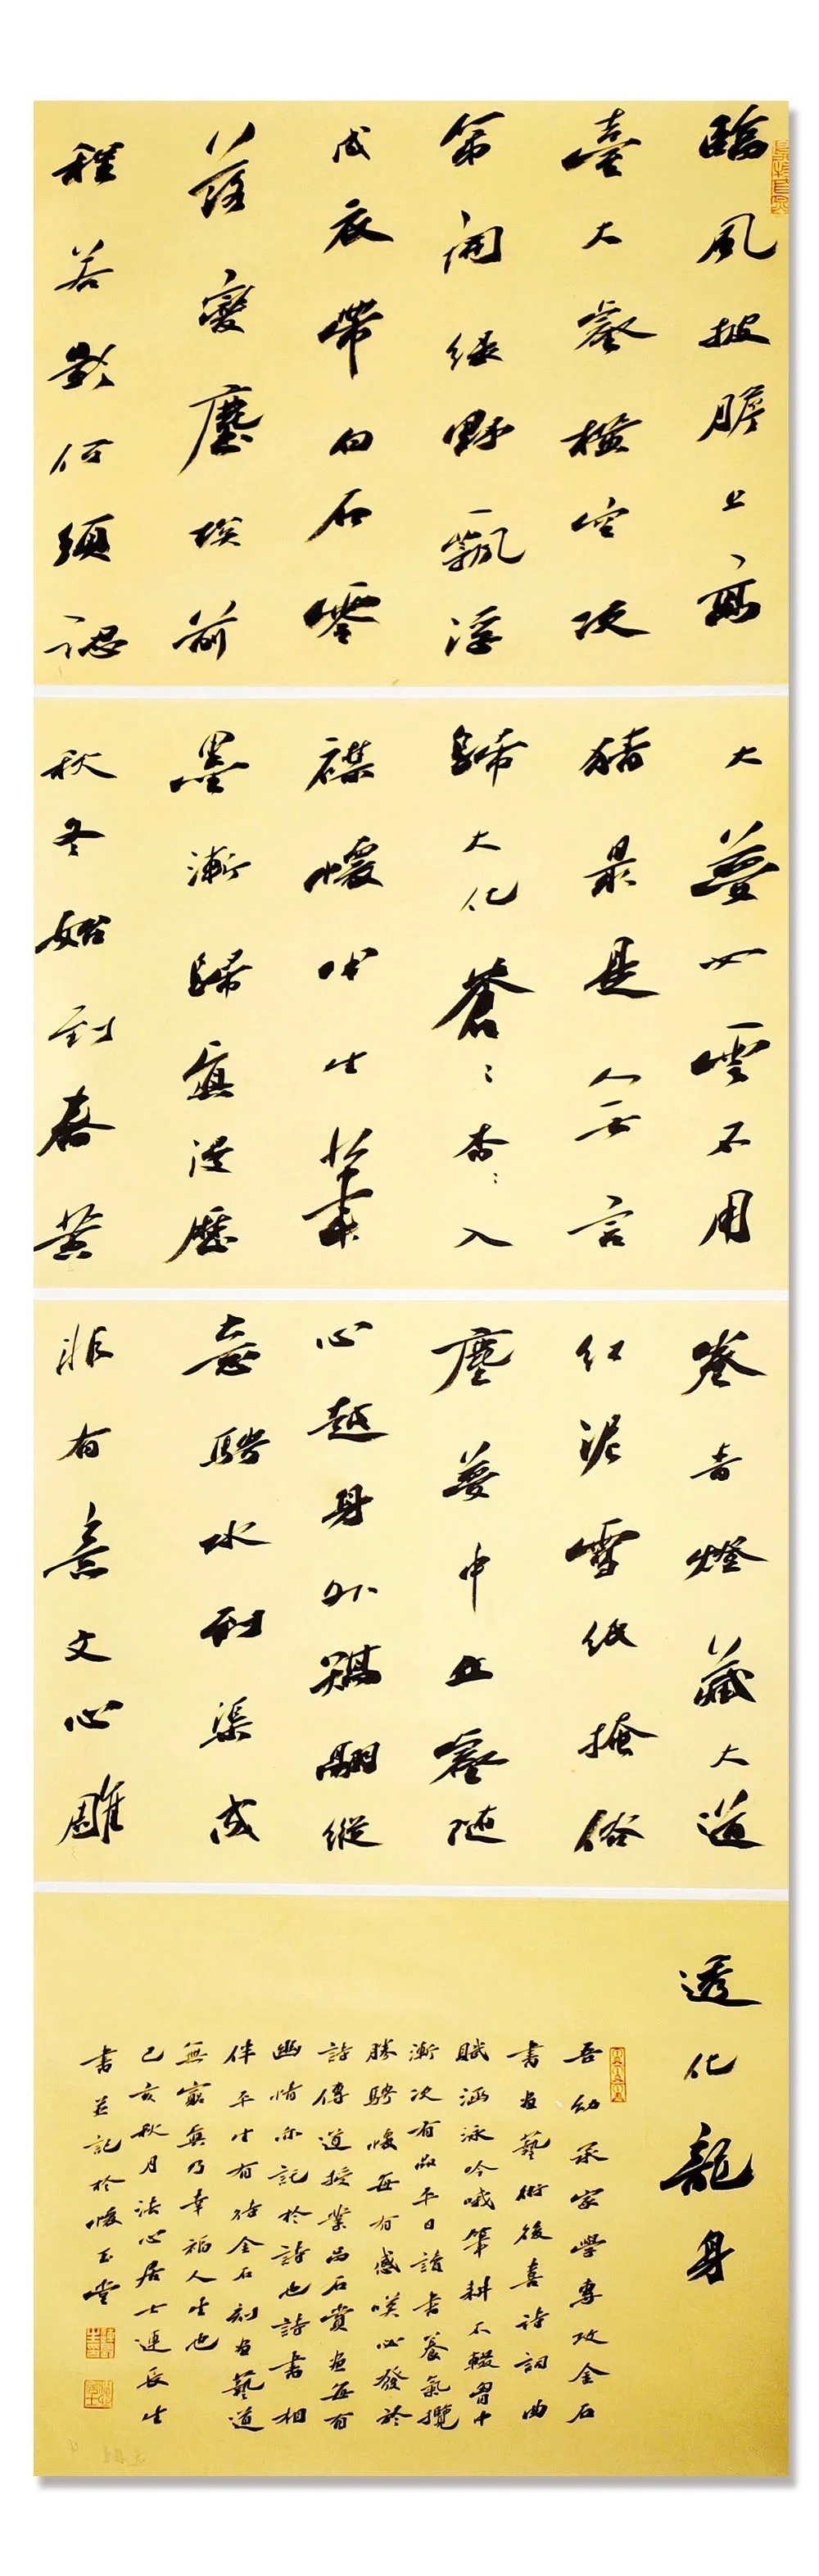 臨風披膽上高
臺大壑橫空次
第開綠野飄浮
成衣帶白石零
落變塵埃前
程若影何須認
大夢如雲不用
猜最是人無言
歸大化蒼〻杳〻入
襟懷此生筆
墨漸歸真漫歷
秋冬始到春黃
卷青燈藏大道
紅泥雪紙掩俗
塵夢中丘壑隨
心越身外鵬縱
意騁水到渠成
非有意文心雕
透化龍身
吾幼承家學專攻金石
書畫藝術後喜詩詞曲
賦涵泳吟哦筆耕不輟胸中
漸次有品平日讀書養氣攬
勝騁懷每有感嘆必發於
詩傳道授業品石賞畫每有
幽情亦記於詩也詩書相
伴平生有待金石刻畫藝道
無窮無乃幸福人生也
己亥秋月法心居士連長生
書並記於懷玉堂